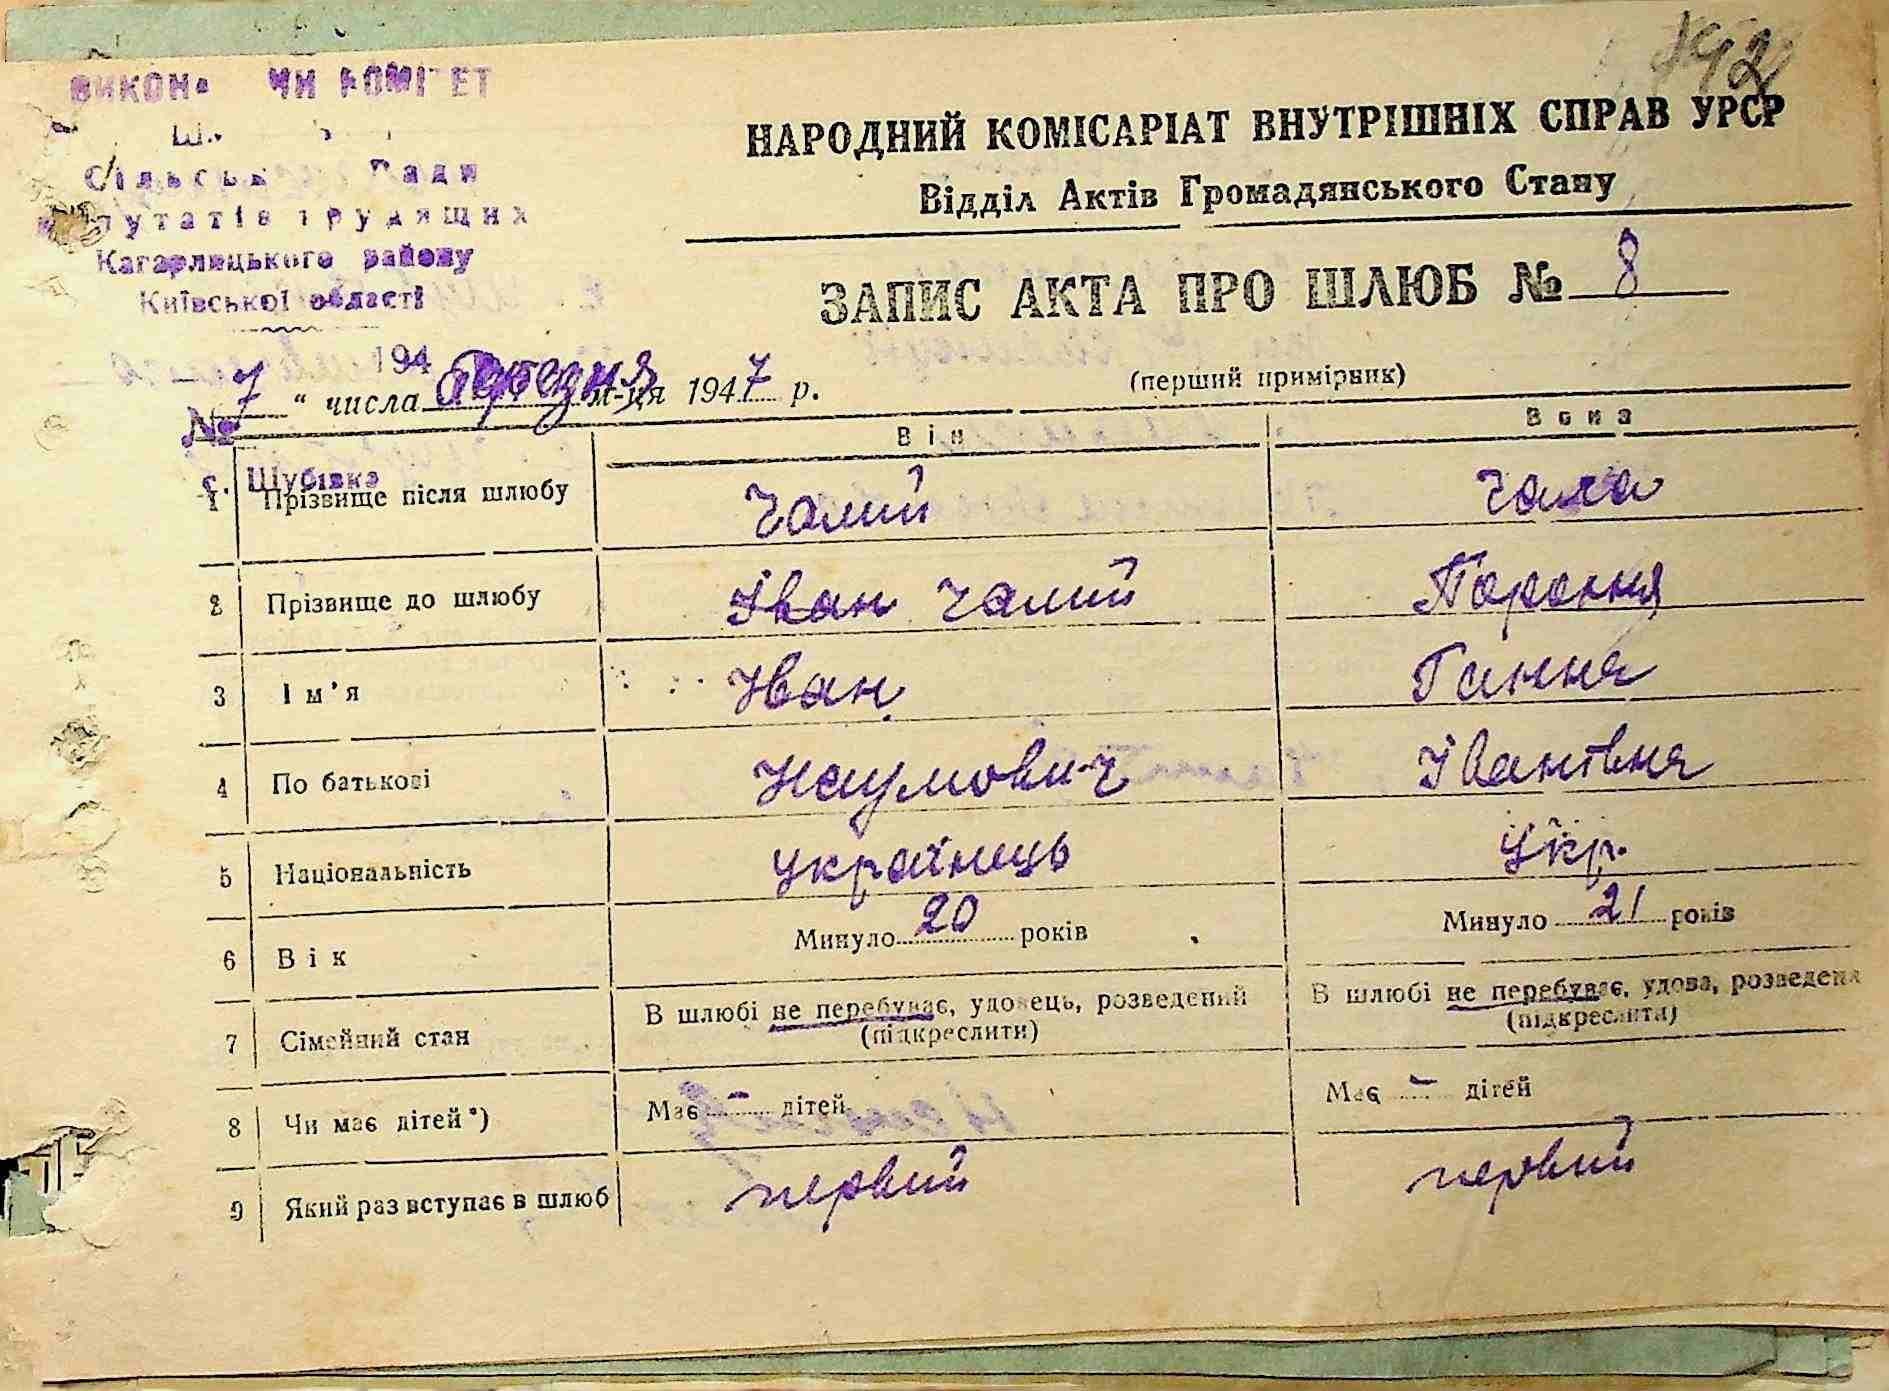 192
КОМІТЕТ
Сільськ Ради
путатів трудящих
Кагарлицького району
Київської області
194
№
с. Шубівка
НАРОДНИЙ КОМІСАРІАТ ВНУТРІШНІХ СПРАВ УРСР
Відділ Актів Громадянського Стану
ЗАПИС АКТА ПРО ШЛЮБ № 8
7 " числа м-ця 1947 р. (перший примірник)
Він Вона
1 Прізвище після шлюбу Чалий Чала
2 Прізвище до шлюбу Іван Чалий
3 Ім'я Іван Ганна
4 По батькові Наумович Іванівна
5 Національність Українець Укр.
6 Вік Минуло 20 років Минуло 21 років
7 Сімейний стан В шлюбі не перебуває, удовець, розведений (підкреслити) В шлюбі не перебуває, удова, розведена (підкреслити)
8 Чи має дітей*) Має - дітей Має - дітей
9 Який раз вступає в шлюб первий первий